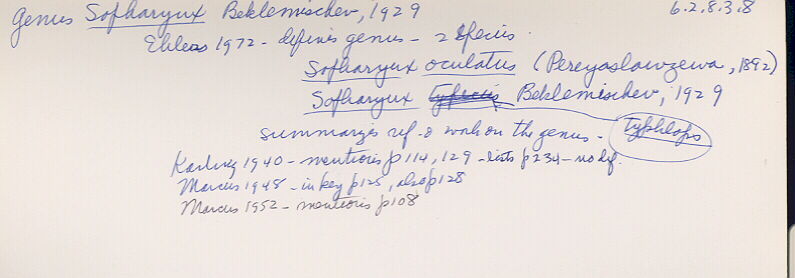 Genus Sopharynx Beklemischev, 1929 6.2.8.3.8
Ehlers 1972 - defines genus - 2 species
Sopharynx oculatus (Pereyaslawzewa, 1892)
Sopharynx typhlops Beklemischev, 1929
summarizes ref. & work on the genus -
Karling 1940 - mentions p114, 129 - lists p234 - no dif.
Marcus 1948 - in key p125, also p128
Marcus 1952 - mentions p108